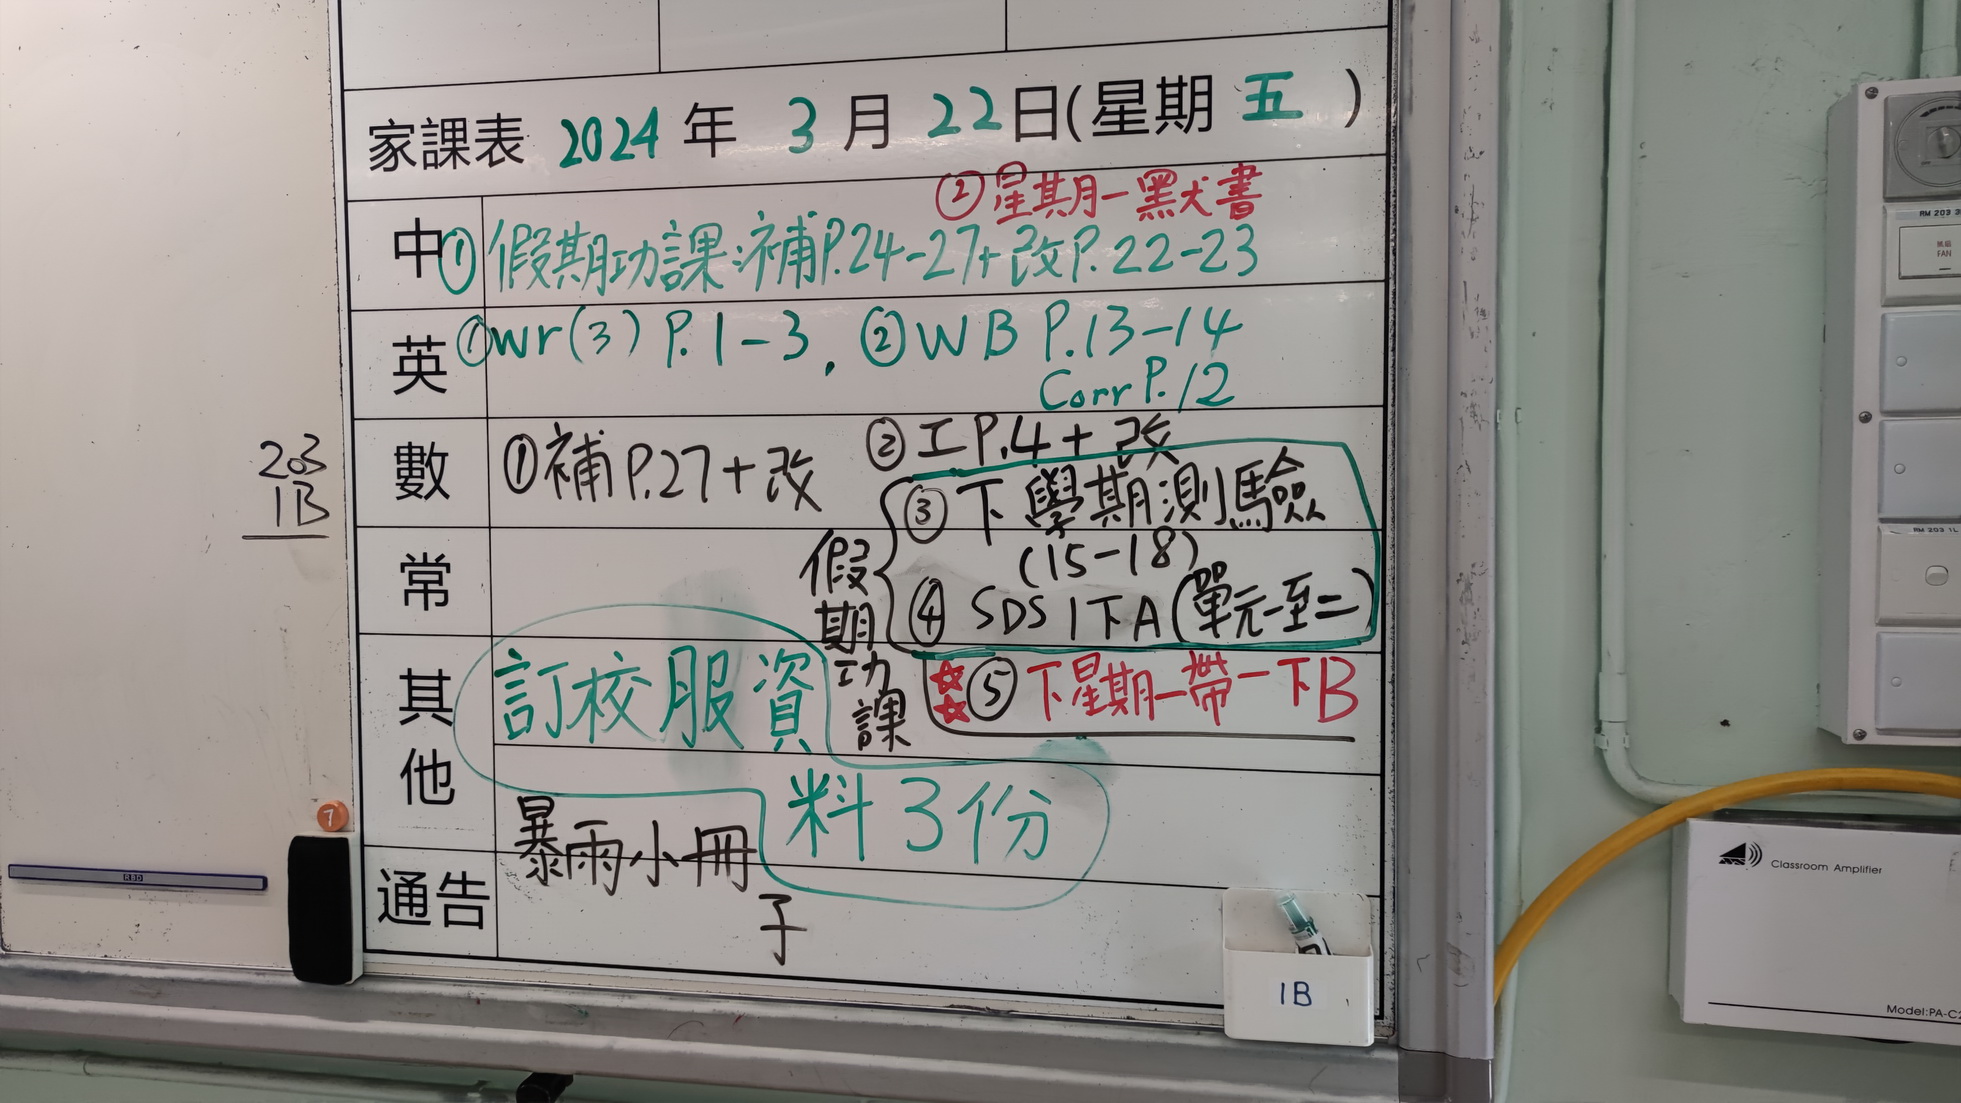 家課表 2024 年 3 月 22 日(星期 五 )
② 星期一黑犬書
中 ① 假期功課:補P.24-27+改P.22-23
英 ① wr(3) P.1-3. ② WB P.13-14
Corr P.12
數 ① 補P.27+改 ② 工P.4+改
③ 下學期測驗
(15-18)
常
④ SDS 1下A(單元一至二)
假期功課
其他
訂校服資
料3份
☆☆ ⑤ 下星期一帶一下B
暴雨小冊
子
通告
203
1B
7
RBD
1B
RM 203
FAN
RM 203 1L
Classroom Amplifier
Model:PA-C